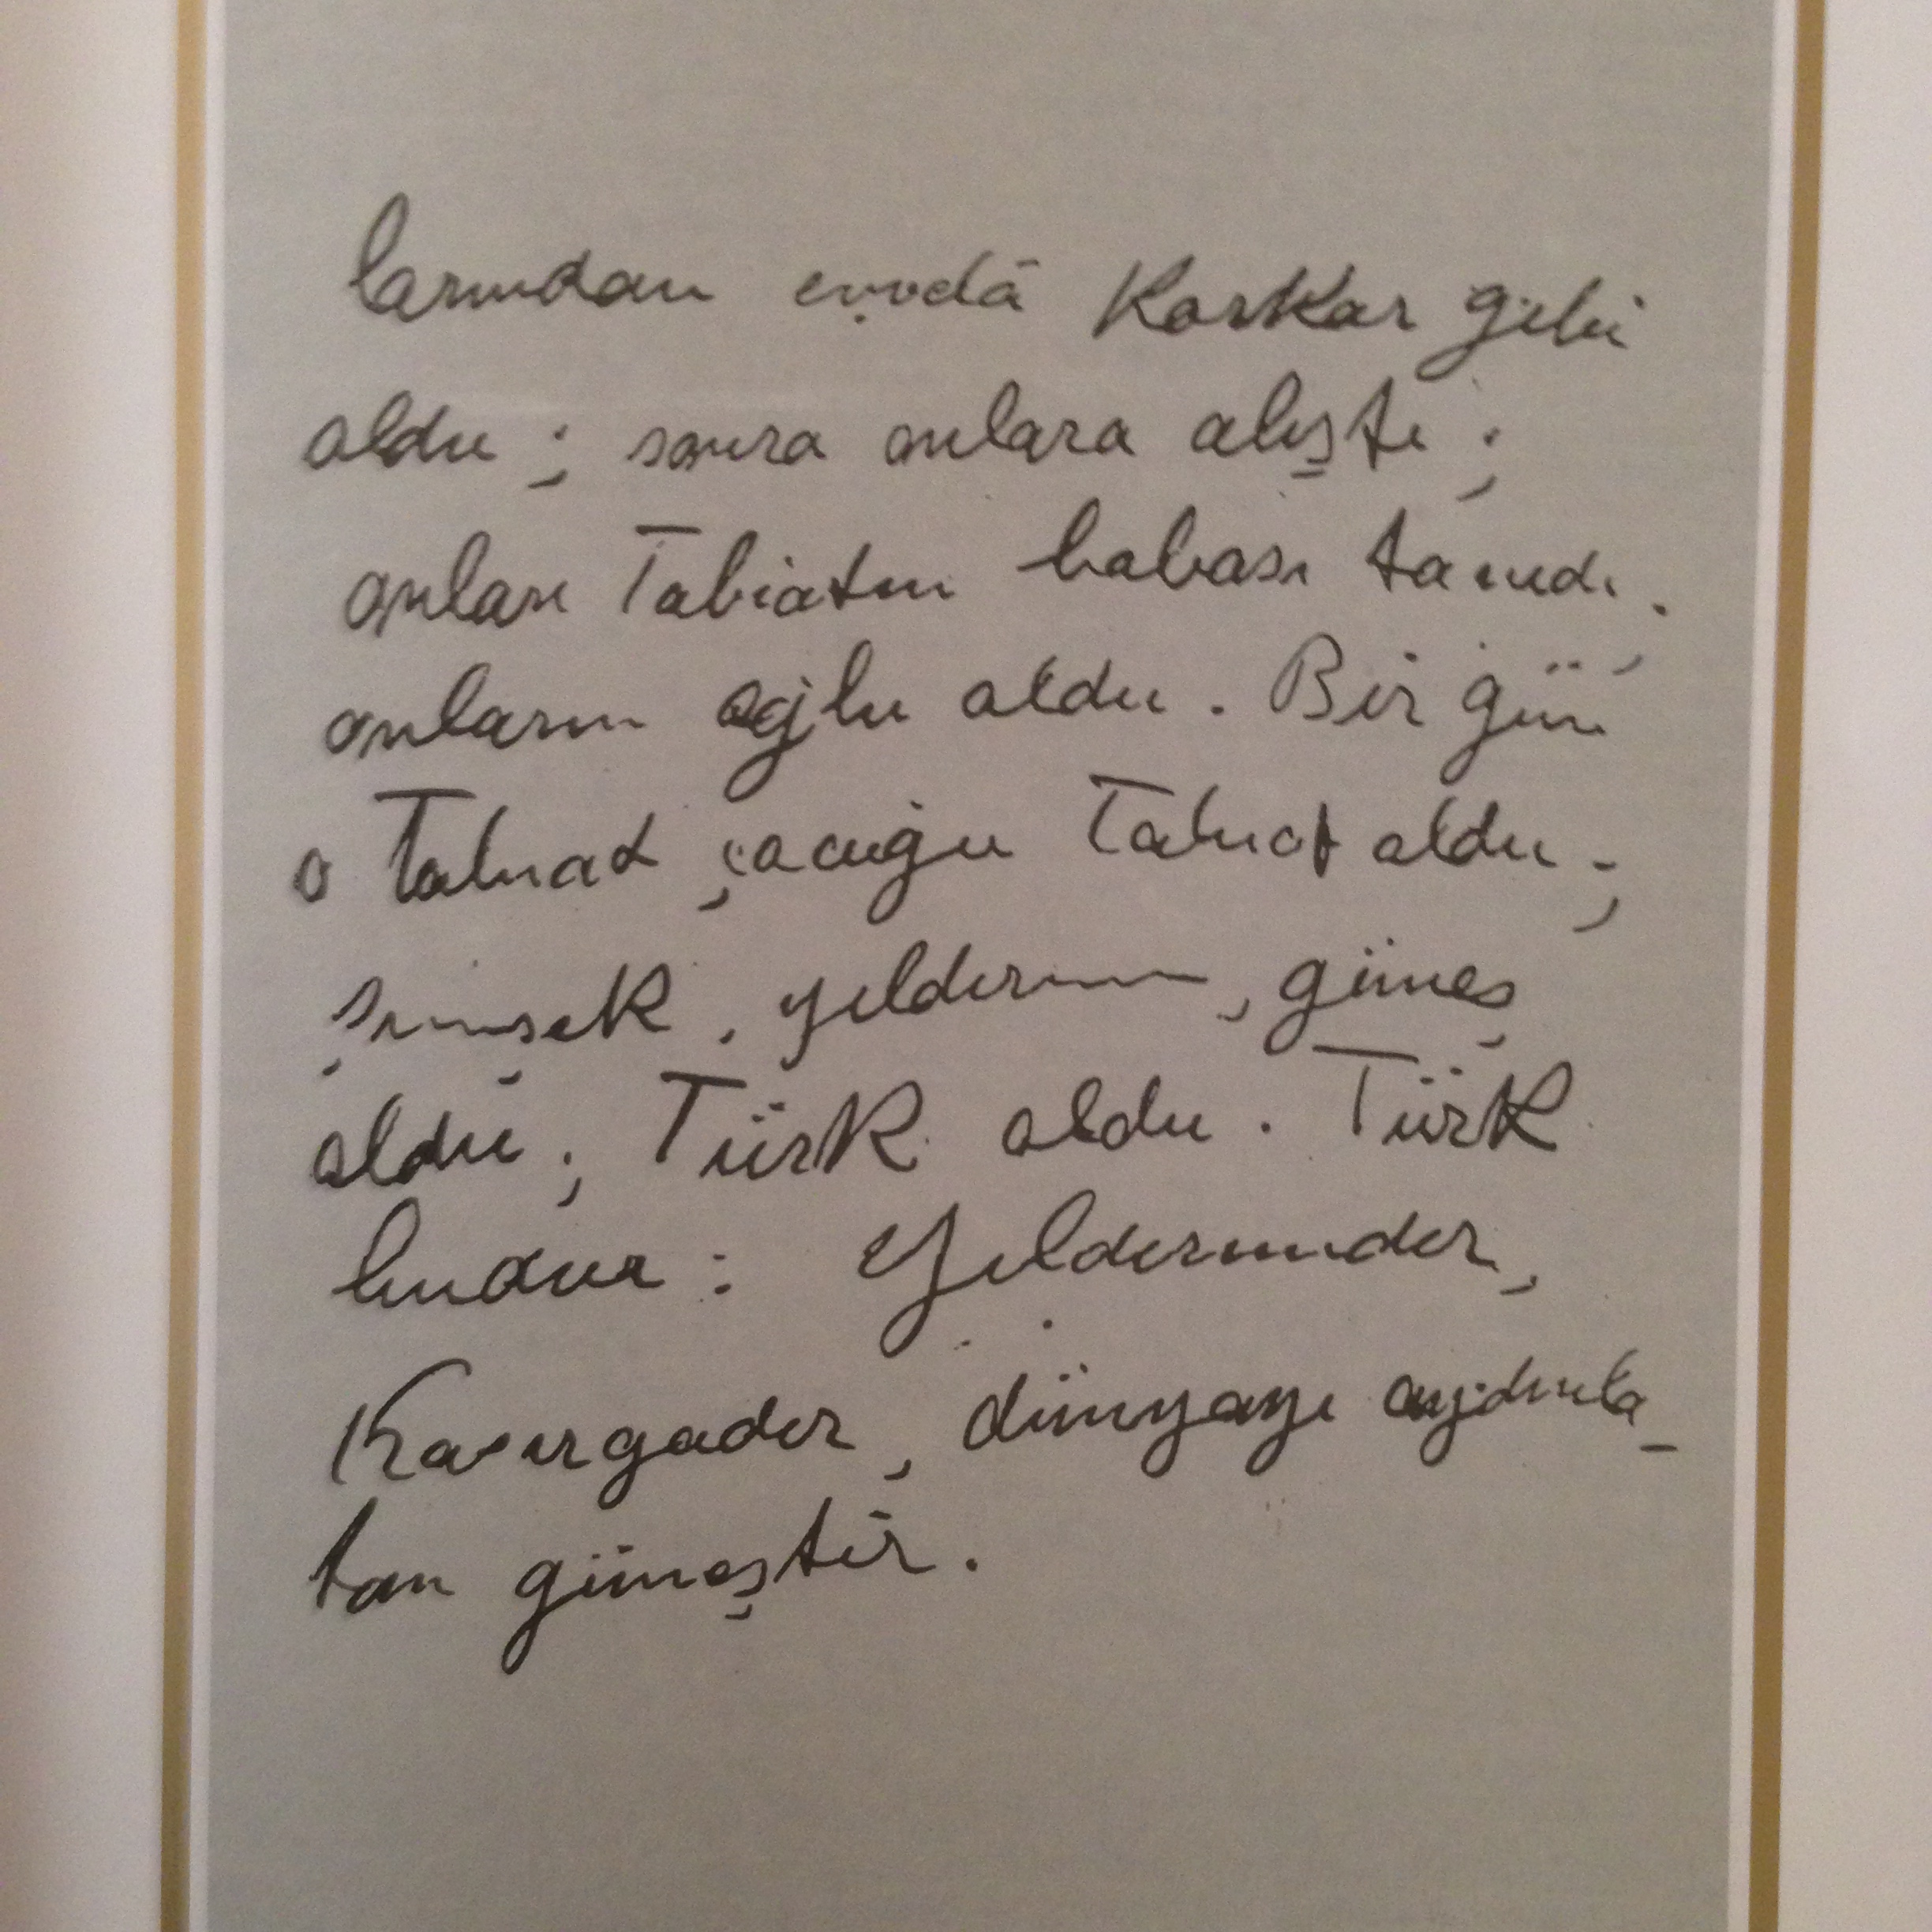 larından evvelâ korkar gibi
oldu; sonra onlara alıştı;
onları Tabiatın babası tanıdı,
onların oğlu oldu. Bir gün
o Tabiat çocuğu Tabiat oldu;
şimşek, yıldırım, güneş
oldu; Türk oldu. Türk
budur: Yıldırımdır,
Kasırgadır, dünyayı aydınla-
tan güneştir.